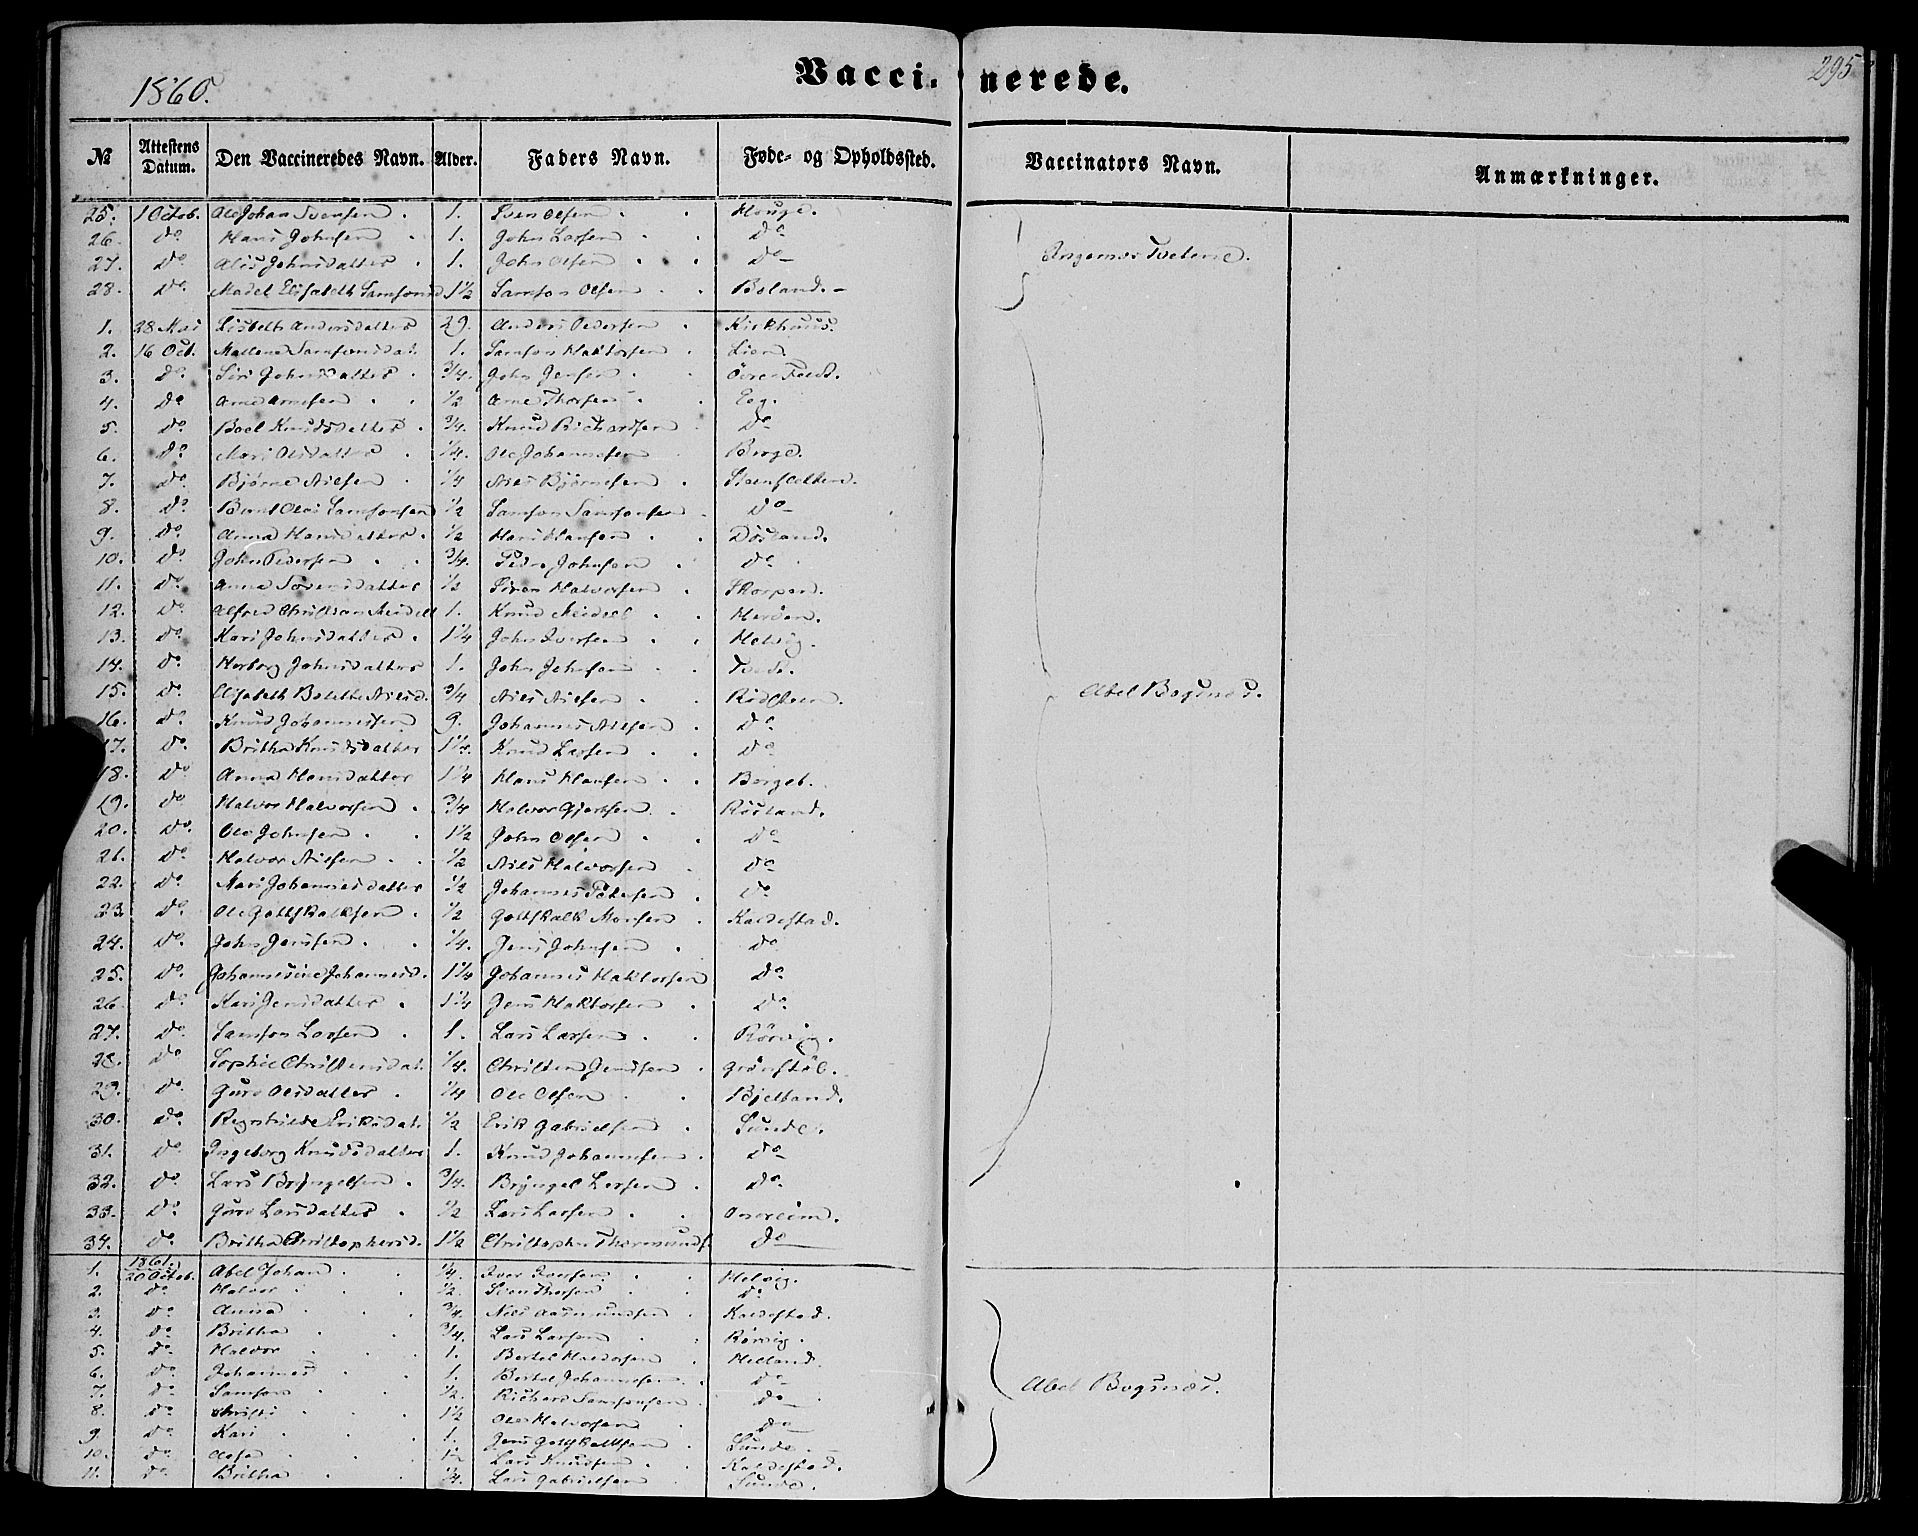 1860.
Vaccinerede.
295
№ Attestens Datum. Den Vaccineredes Navn. Alder. Faders Navn. Føde- og Opholdssted. Vaccinators Navn. Anmærkninger.
25. 1 Octob. Ole Johan Svensen 1. Sven Olsen Houge.
26. Do Hans Johnsen 1. John Larsen Do
27. Do Johnsdatter 1. John Olsen Do Ingemar Tvetene.
28. Do Madel Elisabeth Samsonsd 1½ Samson Olsen Boland.
1. 28 Mai Lisbeth Andersdatter 29. Anders Pedersen Kirkhuus.
2. 16 Oct. Mallene Samsonsdat. 1. Samson Haktorsen Lien.
3. Do Siri Johnsdatter ¾. John Jensen Övre Tvedt.
4. Do Arne Arnesen ½ Arne Thorsen Eeg.
5. Do Boel Knudsdatter ¾. Knud Richardsen Do
6. Do Mari Olsdatter ¼. Ole Johannesen Berge.
7. Do Bjørne Nielsen ¼ Niels Bjørnesen Steensletten.
8. Do Bernt Olai Samsonsen ½ Samson Samsonsen Do
9. Do Anna Hansdatter ½ Hans Hansen Døsland.
10. Do John Pedersen ¾. Peder Johnsen Do
11. Do Anna Sørensdatter ½ Sören Halvorsen Skorpen.
12. Do Alfred Christian Meidell 1. Knud Meidell
13. Do Kari Johnsdatter 1¼ John Iversen Helvig.
14. Do Herborg Johnsdatter 1. John Johnsen Tvedt.
15. Do Elisabeth Bolette Nielsd. ¾ Niels Nielsen Rødsteen. Abel Bogsnæs.
16. Do Knud Johannessen 9. Johannes Nielsen Do
17. Do Britha Knudsdatter 1¼. Knud Larsen Do
18. Do Anna Hansdatter 1¼ Hans Hansen Berget.
19. Do Halvor Halvorsen ¾ Halvor Gjertsen Røsland.
20. Do Ole Johnsen 1½ John Olsen Do
21. Do Halvor Nielsen ½ Niels Halvorsen Do
22. Do Mari Johannesdatter ½ Johannes Pedersen Do
23. Do Ole Gottskalksen ½ Gottskalk Monsen Kaldestad.
24. Do John Jensen ¼. Jens Johnsen Do
25. Do Johannesine Johannesd. 1¼ Johannes Haktorsen Do
26. Do Kari Jensdatter 1¼ Jens Haktorsen Do
27. Do Samson Larsen 1. Lars Larsen Rørvig.
28. Do Sophie Christensdat. ¼. Christen Jensen Grönstöl.
29. Do Guro Olsdatter ¼ Ole Olsen Bjelland.
30. Do Ragnhilde Eriksdat. ½ Erik Gabrielsen Sunde.
31. Do Ingeborg Knudsdatter 1. Knud Johannesen Do
32. Do Lars Bryngelsen ¾. Bryngel Larsen Do
33. Do Guro Larsdatter ½ Lars Larsen
34. Do Britha Christophersd. 1½ Christopher Thormunds. Do
1861.
1. 20 Octob. Abel Johan ¼. Iver Iversen Helvig.
2. Do Halvor ½. Sven Thorsen Do
3. Do Anna ¾. Niels Aadmundsen Kaldestad.
4. Do Britha ¾. Lars Larsen Rørvig.
5. Do Halvor 1. Bertel Haldorsen Helland.
6. Do Johannes 1. Bertel Johannesen Do
7. Do Samson ½. Richard Samsonsen Do Abel Bogsnæs.
8. Do Christi 1½ Ole Halvorsen Do
9. Do Kari 1. Jens Gottskalksen Sunde.
10. Do 1½ Lars Knudsen Kaldestad.
11. Do Britha ¼. Lars Gabrielsen Sunde.